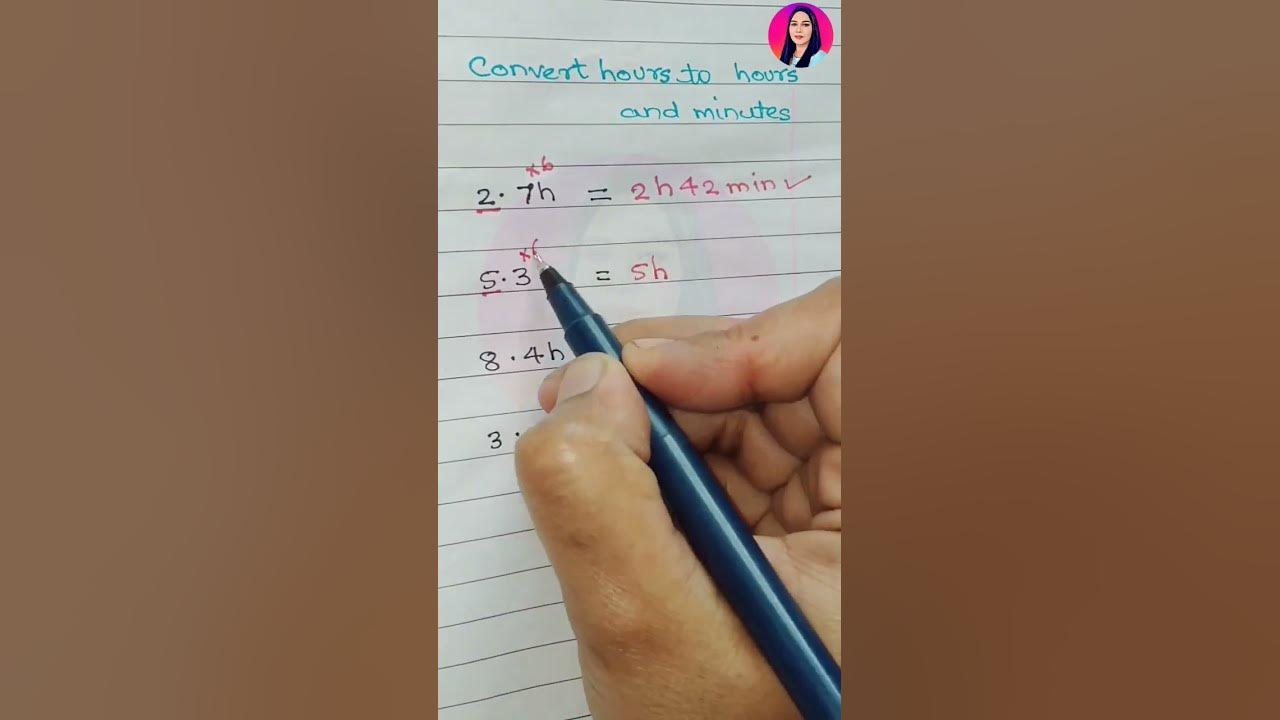 Convert hours to hours
and minutes
×6
2.7h = 2h42min✓
×6
5.3 = 5h
8.4h
3.